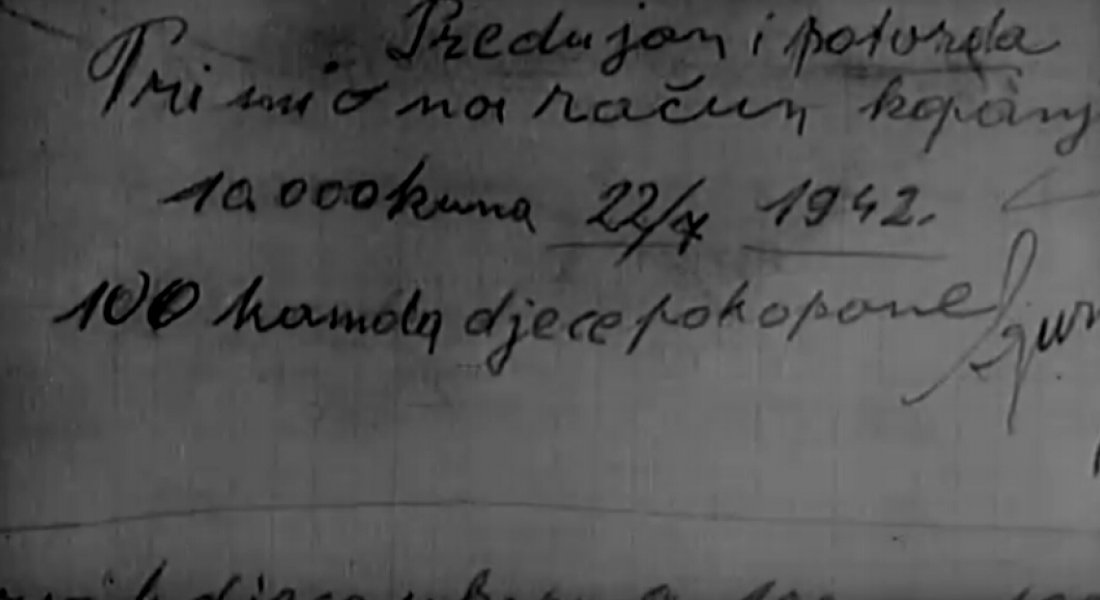 Predujam i potvrda
Primio na račun kopanj
10 000 kuna 22/7 1942.
100 komóta djece pokopane